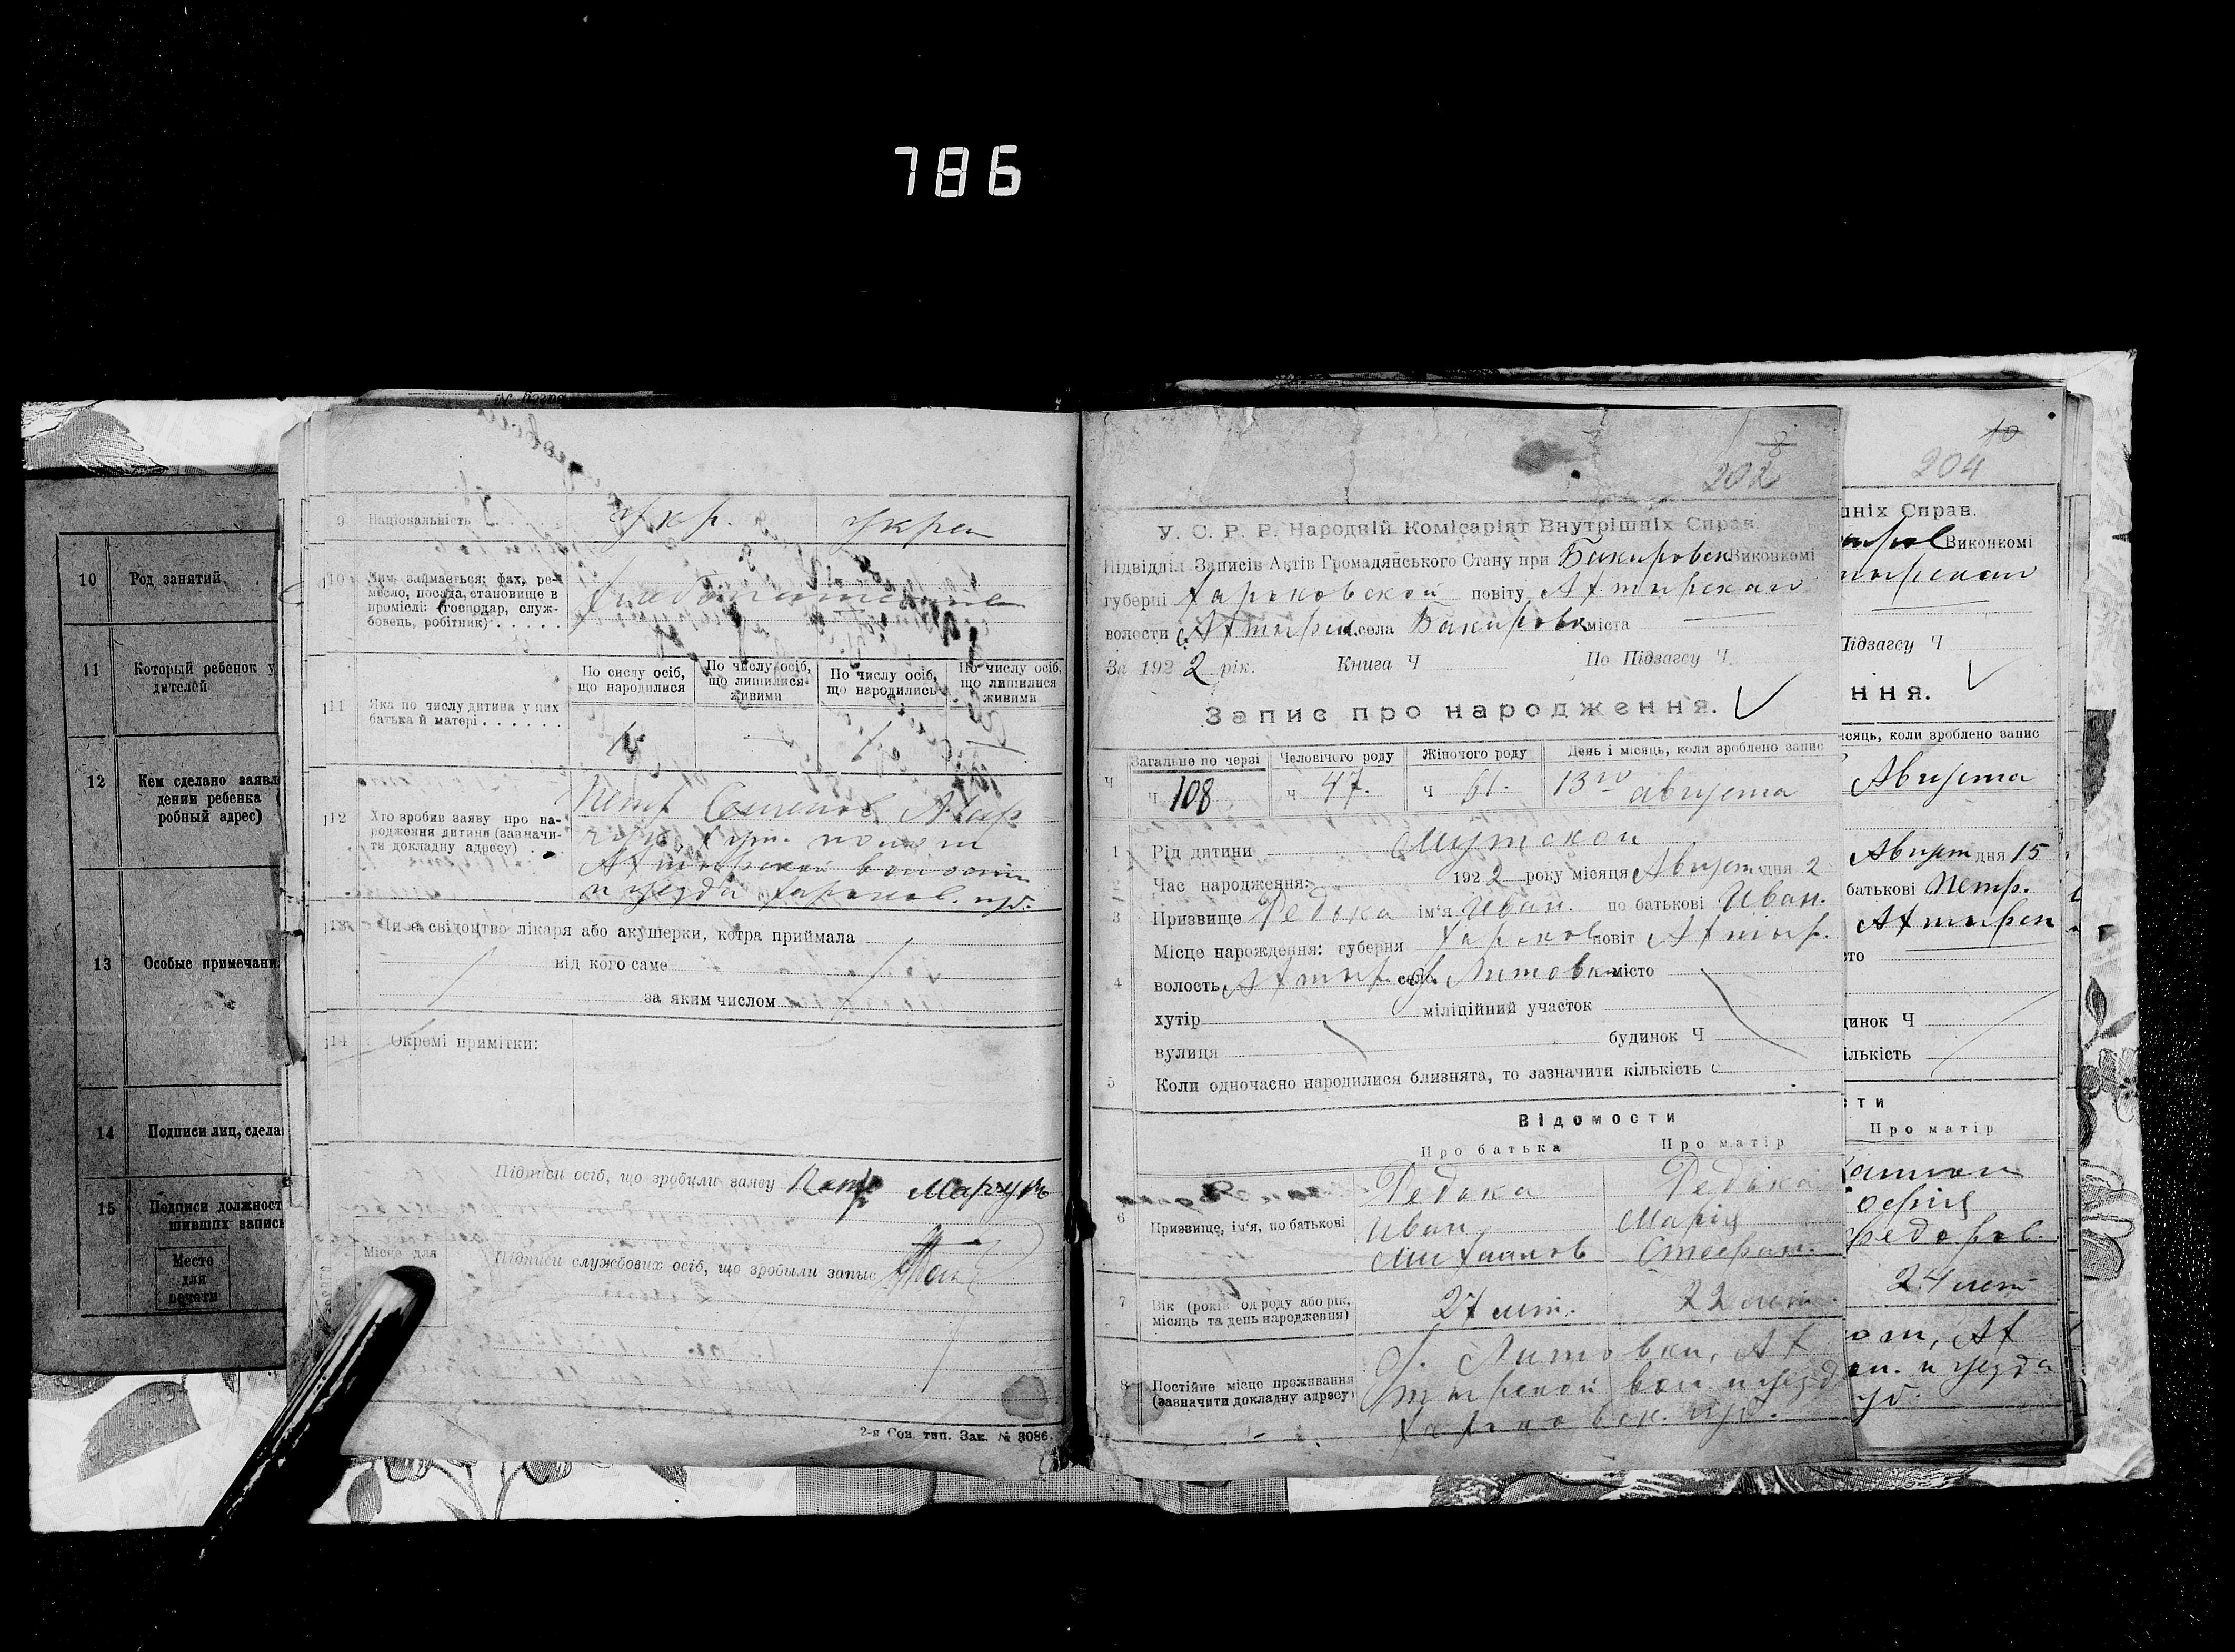 786
10 Род занятий
11 Который ребенок у
дителей
12 Кем сделано заявл
дении ребенка (
робный адрес)
13 Особые примечани
14 Подписи лиц, сдела
15 Подписи должност
шивших запись
Место
для
печати
9 Національність укр. укра
10 Чим займається: фах, ре-
месло, посада, становище в
промислі: (господар, служ-
бовець, робітник)
хлебопашение
По числу осіб,
що народилися
По числу осіб,
що лишилися
живими
По числу осіб,
що народились
По числу осіб,
що лишилися
живими
11 Яка по числу дитина у цих
батька й матері
1 — 1 —
12 Хто зробив заяву про на-
родження дитини (зазначи-
ти докладну адресу)
Петр Семенов Мар
Ахтырской волости
и уезда Харьков. губ.
13 Чи є свідоцтво лікаря або акушерки, котра приймала
від кого саме
за яким числом
14 Окремі примітки:
Підписи осіб, що зробили заяву Петр
Місце для
Підписи службових осіб, що зробыли запыс
2-я Сов. тип. Зак. № 3086.
202
У. С. Р. Р. Народній Комісаріят Внутрішніх Справ.
Підвідділ Записів Актів Громадянського Стану при Бакировск Виконкомі
губерні Харьковской повіту Ахтырскаи
волости Ахтырск. села Бакировк міста —
За 1922 рік. Книга Ч По Підзагсу Ч
Запис про народження.
Загальне по черзі Чоловічого роду Жіночого роду День і місяць, коли зроблено запис
Ч Ч 108 Ч 47. Ч 61. 13го августа
1 Рід дитини Мужской
2 Час народження: 1922 року місяця Август дня 2
3 Призвище Редька ім'я Иван. по батькові Иван.
4 Місце нарождення: губерня Харьков повіт Ахтыр.
волость Ахтыр. село Литовк місто
хутір міліційний участок
вулиця будинок Ч
5 Коли одночасно народилися близнята, то зазначити кількість
Відомости
Про батька Про матір
6 Призвище, ім'я, по батькові
Редька Редька
Иван Мария
Михайлов Стефан.
7 Вік (років од роду або рік,
місяць та день народження)
27 лет. 22 лет.
8 Постійне місце проживання
(зазначити докладну адресу)
С. Литовки, Ах
тырской вол и уезд
Харьковск. губ.
10
204
шніх Справ.
Виконкомі
Підзагсу Ч
ння.
ісяць, коли зроблено запис
Августа
Август дня 15
батькові Петр.
Ахтырск
сто
динок Ч
ількість
сти
Про матір
офия
Федоров.
24 лет
ол. и уезда